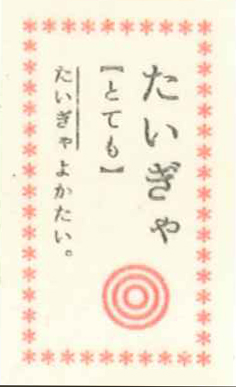 たいぎゃ
【とても】
たいぎゃよかたい。